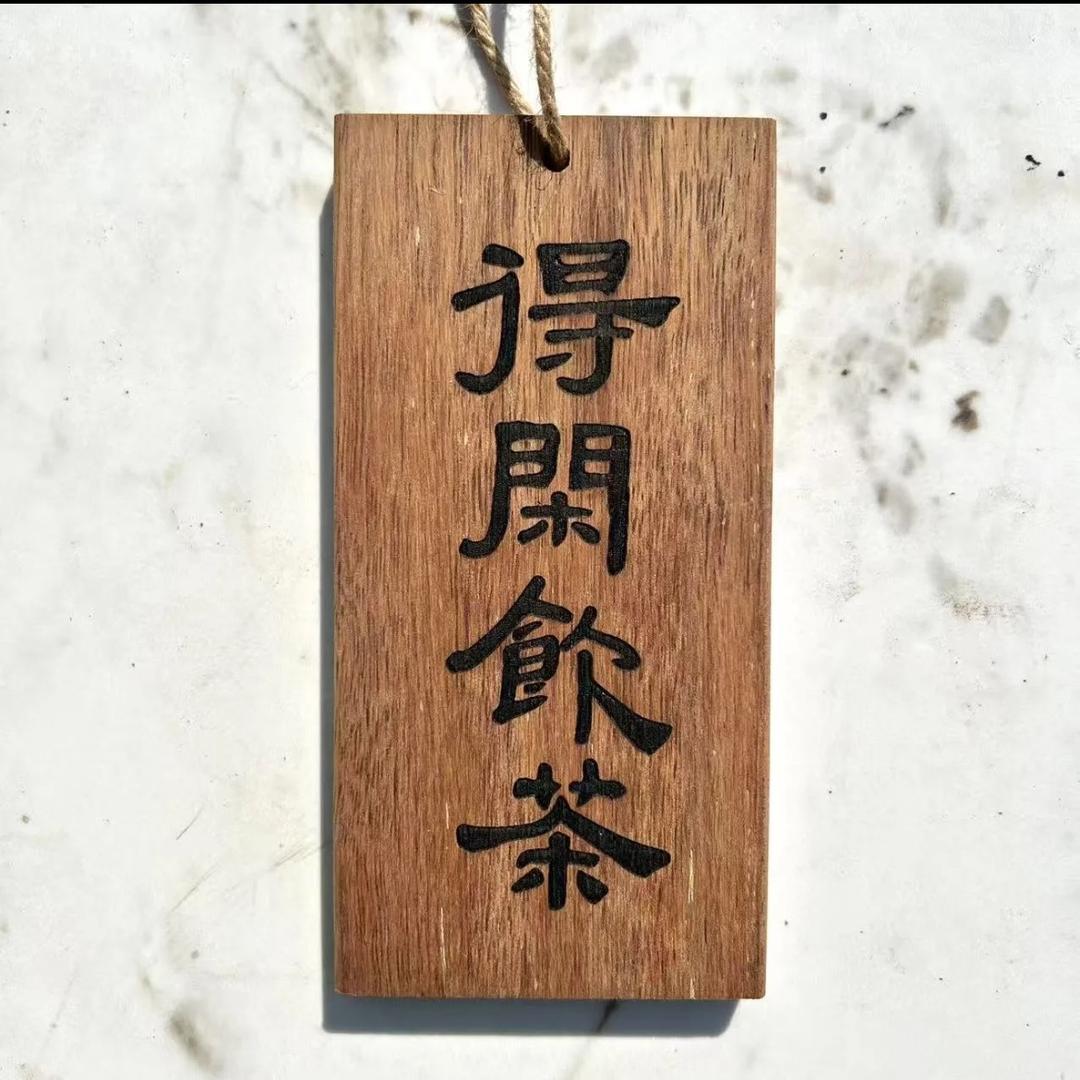 得閑飲茶